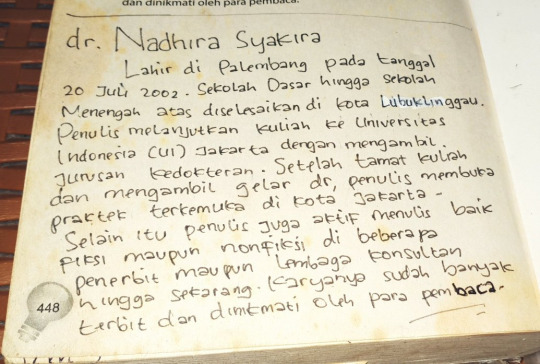 dan dinikmati oleh para pembaca.
dr. Nadhira Syakira
Lahir di Palembang pada tanggal
20 Juli 2002. Sekolah Dasar hingga Sekolah
Menengah atas diselesaikan di kota Lubuklinggau.
Penulis melanjutkan kuliah ke Universitas
Indonesia (UI) Jakarta dengan mengambil.
Jurusan kedokteran. Setelah tamat kuliah
dan mengambil gelar dr, penulis membuka
praktek terkemuka di kota Jakarta-
Selain itu penulis juga aktif menulis baik
fiksi maupun nonfiksi di beberapa
penerbit maupun lembaga konsultan
hingga sekarang. Karyanya sudah banyak
terbit dan dinikmati oleh para pembaca.
448